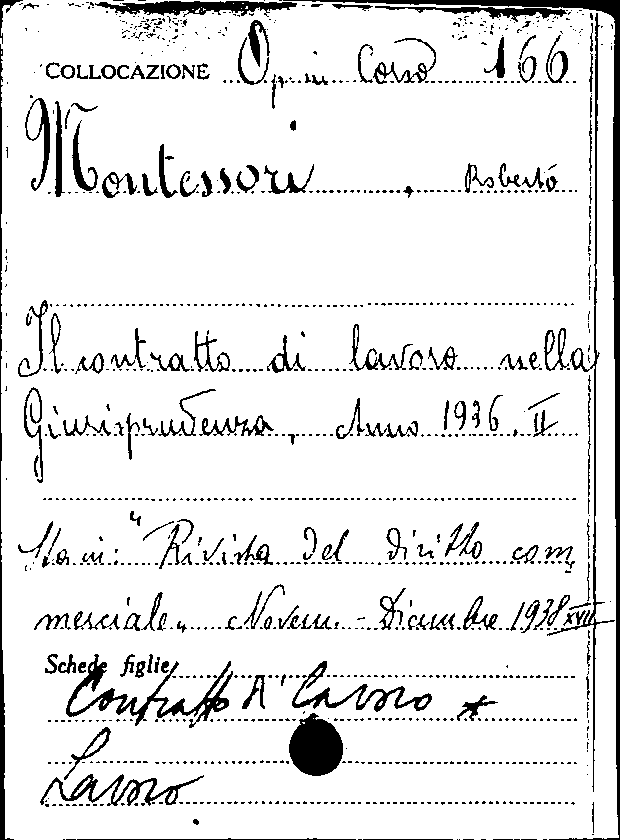 COLLOCAZIONE Op. in Corso 166
Montessori, Roberto
Il contratto di lavoro nella
Giurisprudenza, Anno 1936. II
Sta in: "Rivista del diritto com,
merciale„ Novem. - Dicembre 1938 XVII
Schede figlie
Contratto di lavoro *
Lavoro